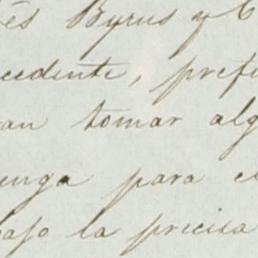 és Byrus y C
cedente, prefi
an tomar alg
enga para el
bajo la precisa